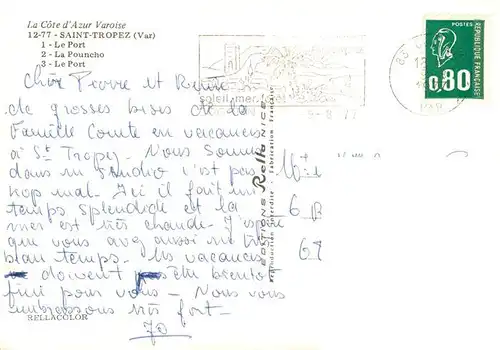 La Côte d'Azur Varoise
12-77 - SAINT-TROPEZ (Var)
1 - Le Port
2 - La Pouncho
3 - Le Port
Chère Pierre et
de grosses bises de la
Famille Comte en vacances
à St Tropez. Nous sommes
dans un studio c'est pas
trop mal. Ici il fait un
temps splendide et la
mer est très chaude. J'espère
que vous avez aussi un très
beau temps. Les vacances
doivent être bientôt
fini pour vous - Nous vous
embrassons très fort -
JO
BELLACOLOR
EDITIONS Rella NICE
Reproduction Interdite - Fabrication Française
soleil mer
9-8 77
83
VAR
POSTES
REPUBLIQUE FRANÇAISE
0,80
6